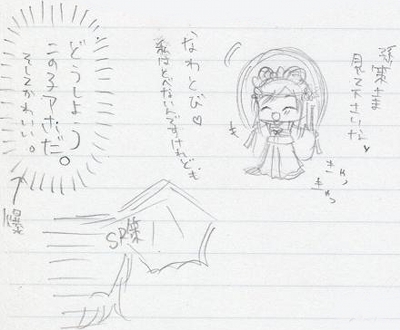 孫策さま
見て下さいな♥
きゃっ
きゃっ
なわとび♡
私はとべないんですけれども
どうしよう
この子アホだ。
そしてかわいい。
爆
SR策